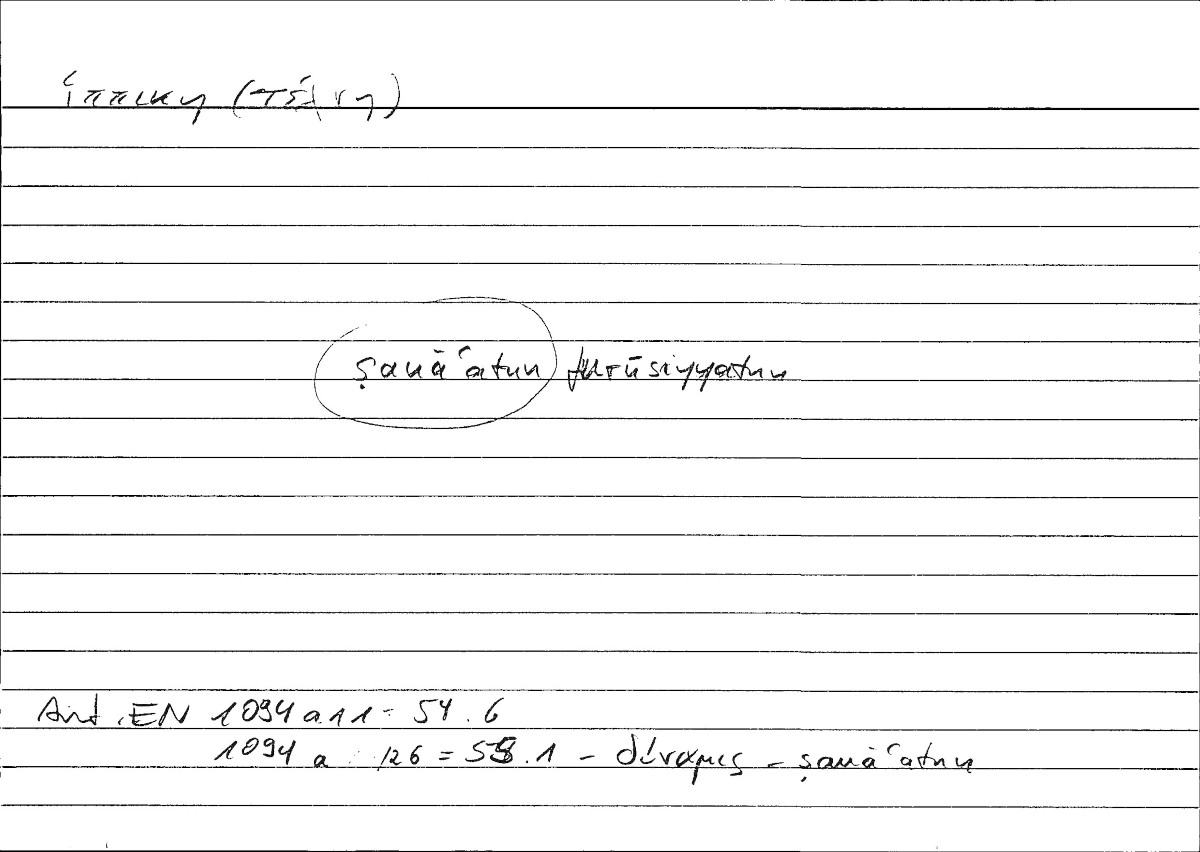 ἱππική (τέχνη)
ṣanāʿatun furūsiyyatun
Arist. EN 1094 a 11 = 54.6
1094 a 26 = 55.1 – δύναμις – ṣanāʿatun